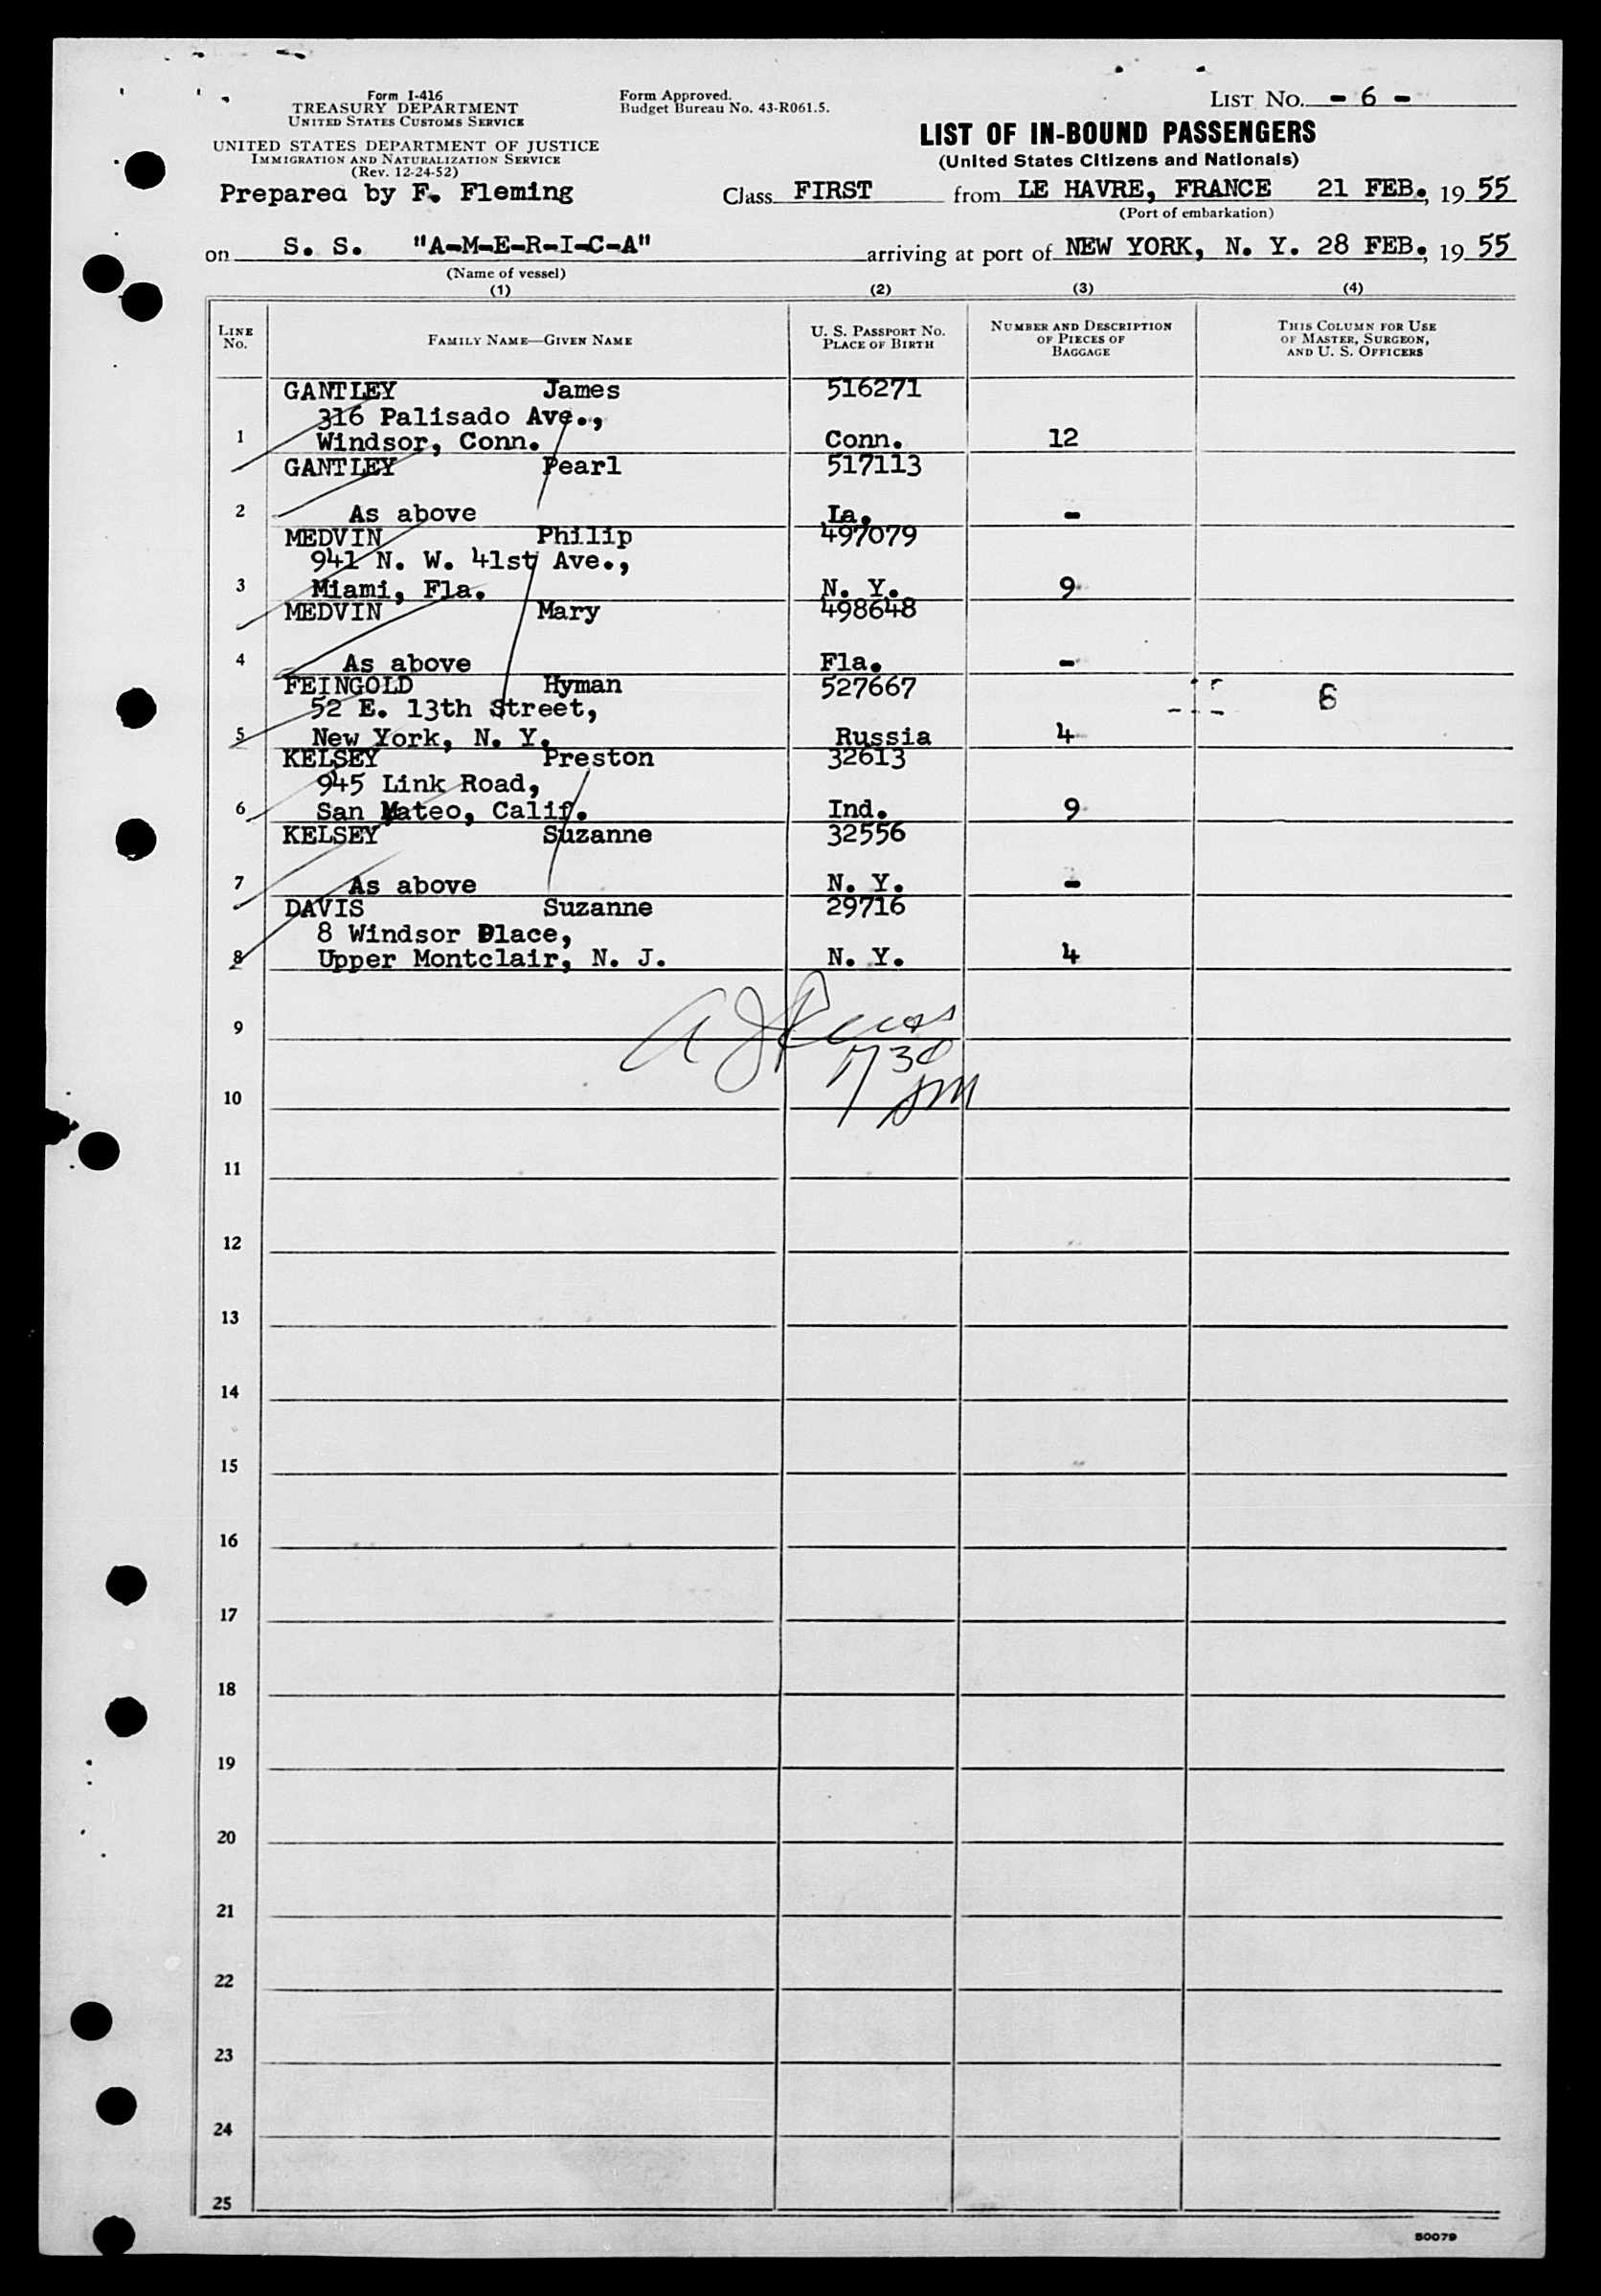 Form I-416
TREASURY DEPARTMENT
UNITED STATES CUSTOMS SERVICE
UNITED STATES DEPARTMENT OF JUSTICE
IMMIGRATION AND NATURALIZATION SERVICE
(Rev. 12-24-52)
Form Approved.
Budget Bureau No. 43-R061.5.
LIST NO. - 6 -
LIST OF IN-BOUND PASSENGERS
(United States Citizens and Nationals)
Prepared by F. Fleming
Class FIRST from LE HAVRE, FRANCE 21 FEB., 1955
(Port of embarkation)
on S. S. "A-M-E-R-I-C-A" arriving at port of NEW YORK, N. Y. 28 FEB., 1955
(Name of vessel)
(1) (2) (3) (4)
LINE NO.
FAMILY NAME—GIVEN NAME
U. S. PASSPORT NO.
PLACE OF BIRTH
NUMBER AND DESCRIPTION
OF PIECES OF
BAGGAGE
THIS COLUMN FOR USE
OF MASTER, SURGEON,
AND U. S. OFFICERS
GANTLEY James 516271
316 Palisado Ave.,
1 Windsor, Conn. Conn. 12
GANTLEY Pearl 517113
2 As above La. -
MEDVIN Philip 497079
941 N. W. 41st Ave.,
3 Miami, Fla. N. Y. 9
MEDVIN Mary 498648
4 As above Fla. -
FEINGOLD Hyman 527667
52 E. 13th Street,
5 New York, N. Y. Russia 4
KELSEY Preston 32613
945 Link Road,
6 San Mateo, Calif. Ind. 9
KELSEY Suzanne 32556
7 As above N. Y. -
DAVIS Suzanne 29716
8 Windsor Place,
8 Upper Montclair, N. J. N. Y. 4
9
730
pm
10
11
12
13
14
15
16
17
18
19
20
21
22
23
24
25
50079